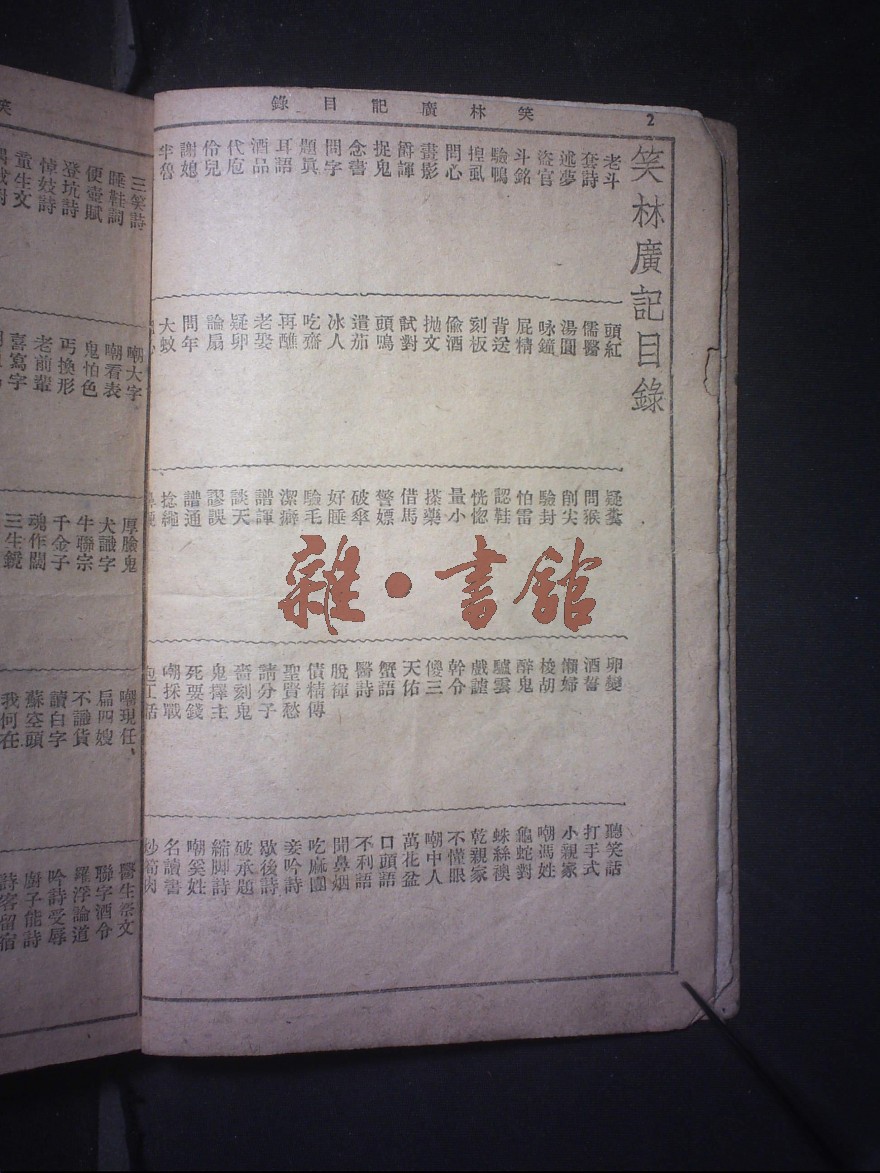 笑林廣記目錄
2
笑林廣記目錄
老斗
套詩
述夢
盜官
斗銘
驗鴨
捏虱
問心
畫影
爵諢
捉鬼
念書
問字
題真
耳語
酒品
代庖
伶兒
謝媳
半魯
頭紅
儒醫
湯圓
咏鐘
屁精
背送
刻板
偷酒
拋文
試對
頭鳴
遺茄
冰人
吃齋
再醮
老娶
疑卵
論扇
問年
大蚊
疑糞
問猴
削尖
驗封
怕雷
認鞋
恍惚
量小
搽藥
借馬
警嫖
破傘
好睡
驗毛
潔癖
譜諢
談天
謬誤
譜通
捻繩
卵變
酒誓
懶婦
梭胡
醉鬼
驢雲
戲謔
幹令
傻三
天佑
蟹語
醫詩
脫褲
債精傳
聖賢愁
請分子
嗇刻鬼
鬼擇主
死要錢
嘲採戰
聽笑話
打手式
小親家
嘲馮姓
龜蛇對
蛛絲襖
乾親家
不懂眼
嘲中人
萬花盆
口頭語
不利語
開鼻烟
吃麻團
妾吟詩
歇後詩
破承題
縮脚詩
嘲奚姓
名讀書
炒筍肉
笑
三笑詩
睡鞋詞
便壺賦
澄坑詩
悼妓詩
童生文
嘲大字
嘲看表
鬼怕色
丐換形
老前輩
喜寫字
厚臉鬼
犬識字
牛聯宗
千金子
魂作闊
三生鏡
嘲現任
扁四嫂
不識貨
讀白字
蘇空頭
我何在
醫生祭文
聯字酒令
羅浮論道
吟詩受辱
廚子能詩
詩客留宿
雜·書館